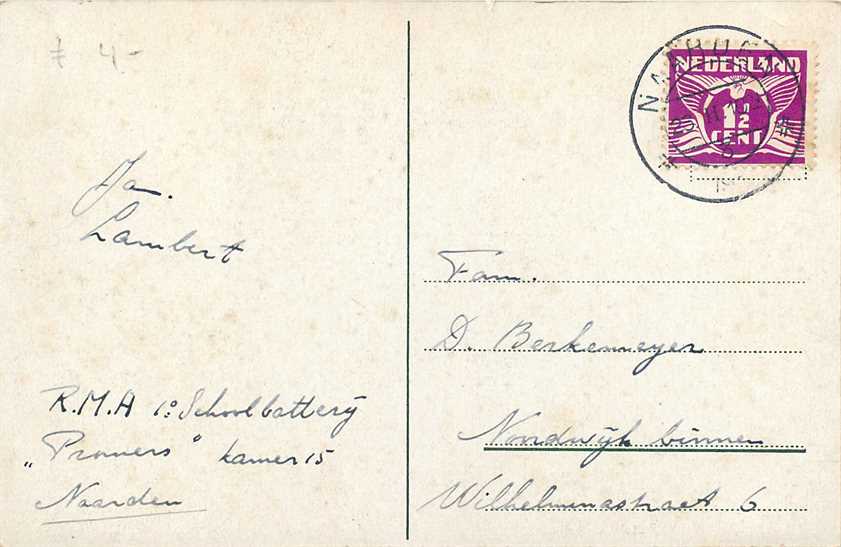 4-
Lambert
R.M.A 1e Schoolbatterij
„Promers" kamer 15
Naarden
NAARDEN
NEDERLAND
1½
CENT
Fam.
D. Berkemeyer
Noordwijk binnen
Wilhelminastraat 6